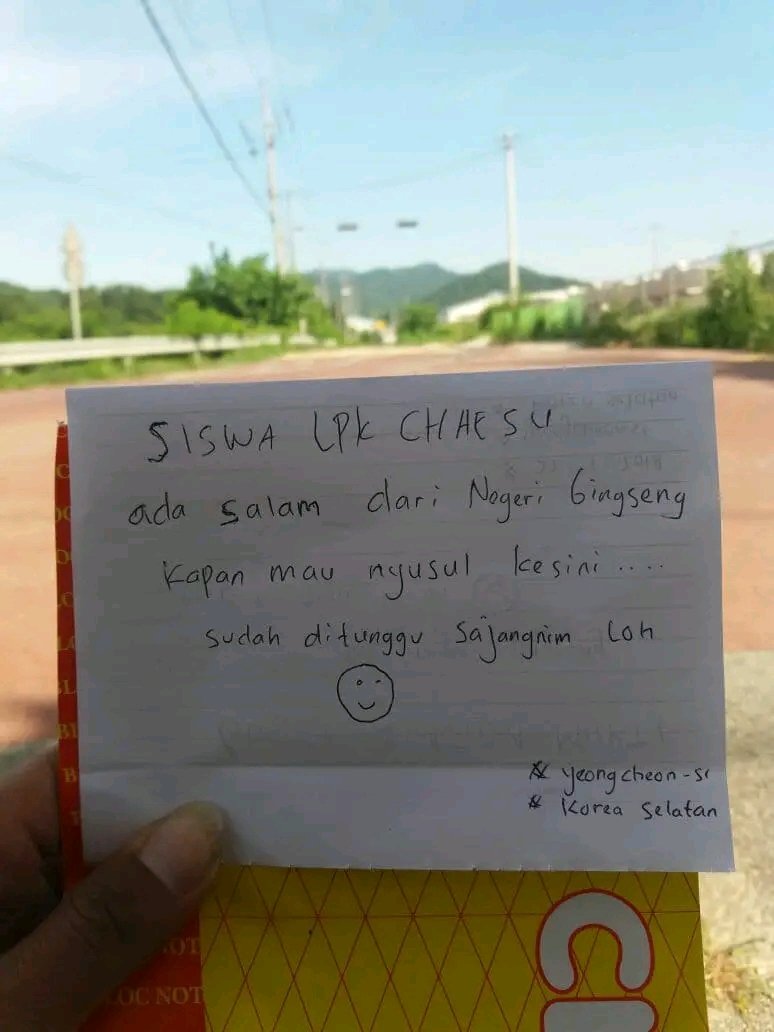 SISWA LPK CHAESU
ada salam dari Negeri Gingseng
kapan mau nyusul kesini....
sudah ditunggu sajangnim loh
* yeongcheon-si
* Korea selatan
NOT
LOC NOT